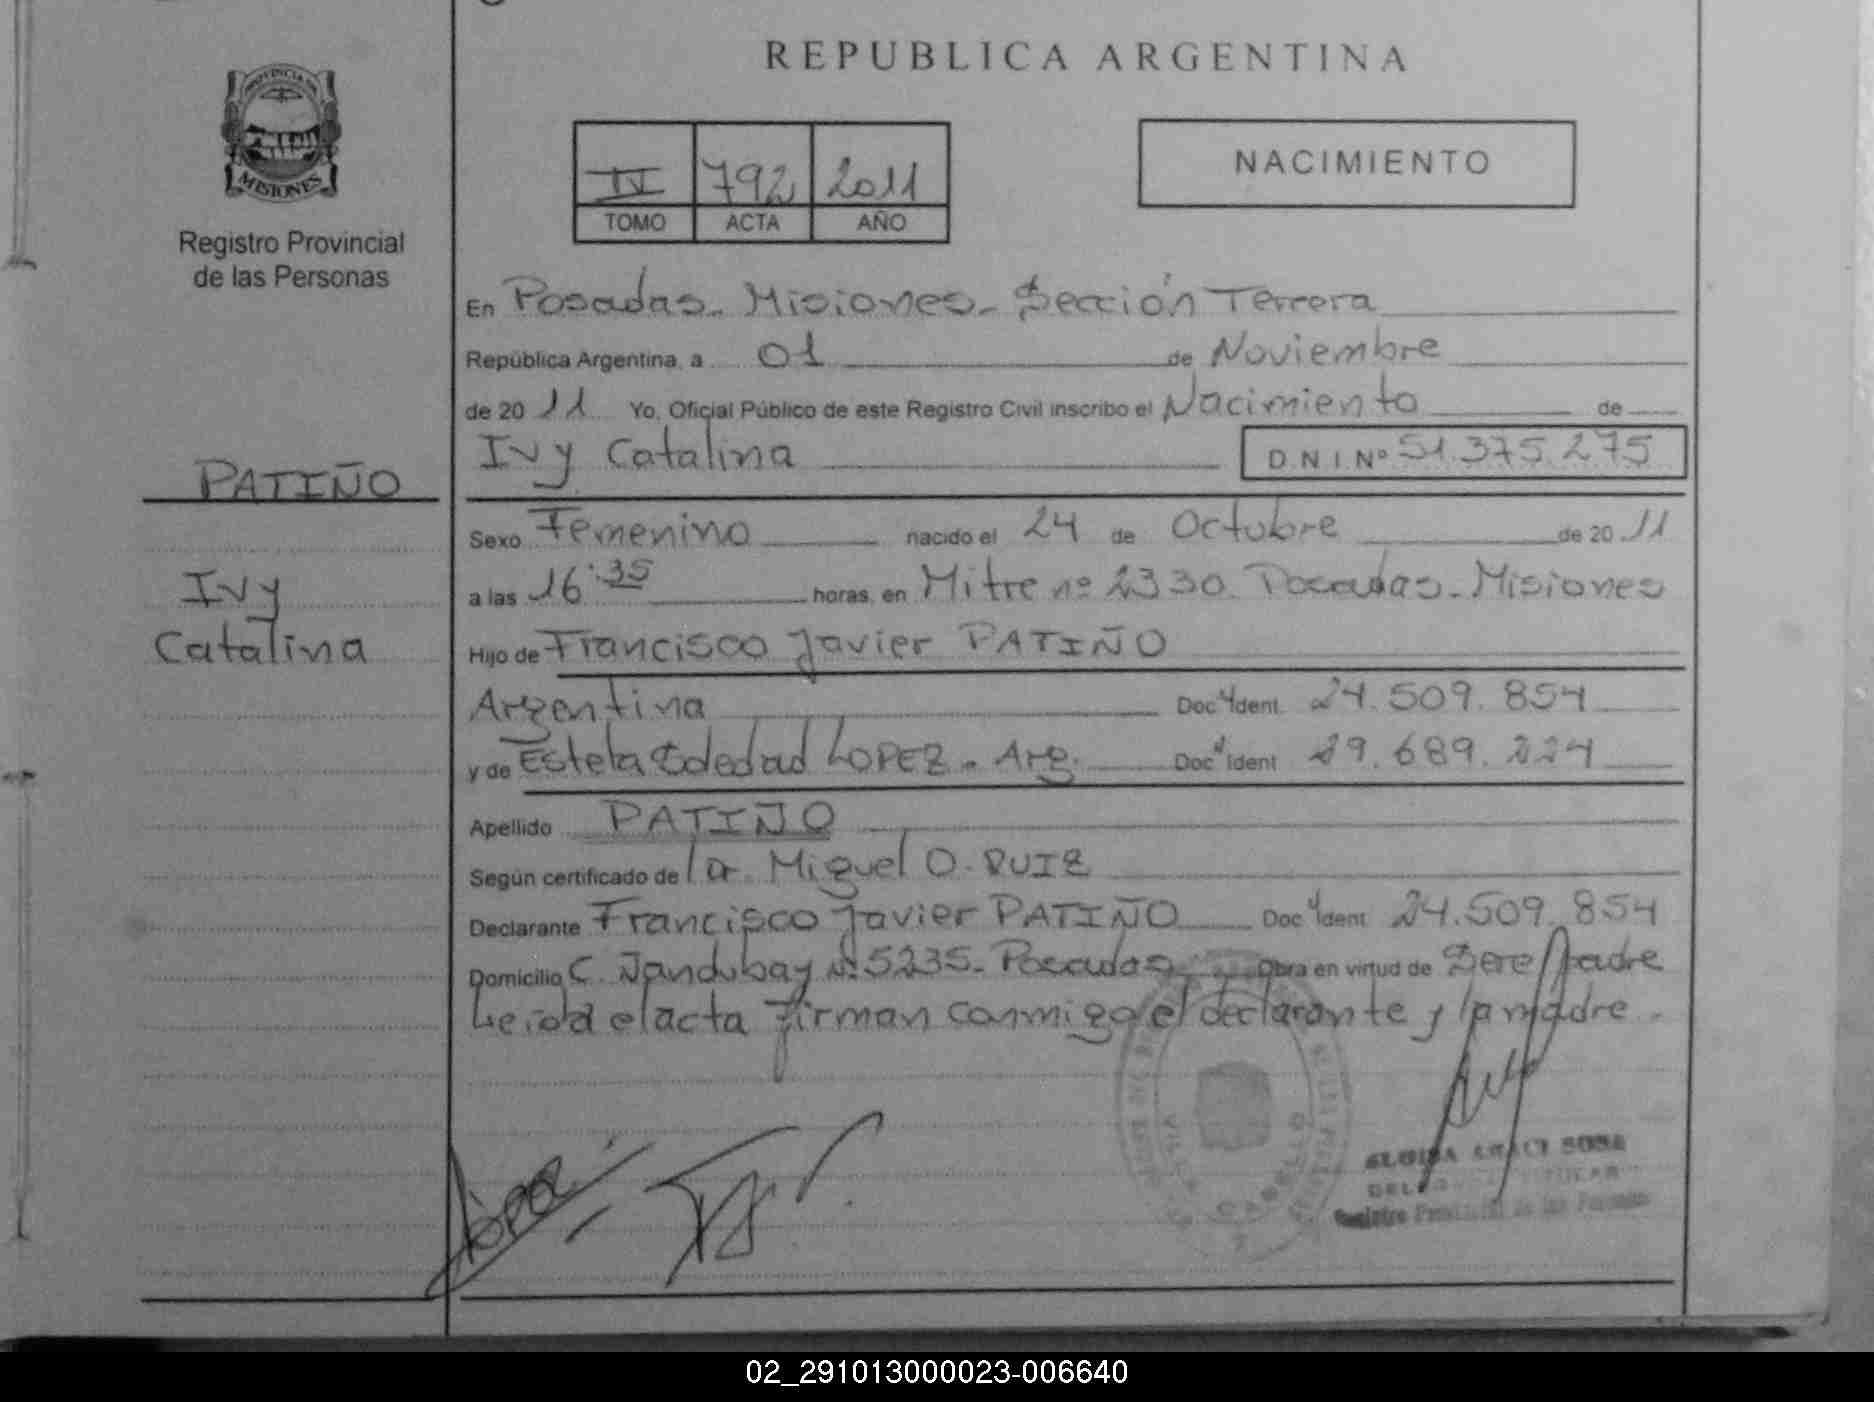 REPUBLICA ARGENTINA
PROVINCIA DE
MISIONES
Registro Provincial
de las Personas
IV 792 2011
TOMO ACTA AÑO
NACIMIENTO
En Posadas - Misiones - Sección Tercera
República Argentina, a 01 de Noviembre
de 2011 Yo, Oficial Público de este Registro Civil inscribo el Nacimiento de
Ivy Catalina D.N.I.Nº 51.375.275
PATIÑO
Ivy
Catalina
Sexo Femenino nacido el 24 de Octubre de 2011
a las 16:35 horas, en Mitre nº 2330. Posadas - Misiones
Hijo de Francisco Javier PATIÑO
Argentina Doc Ident. 24.509.854
y de Estela Soledad LOPEZ - Arg. Doc Ident 29.689.224
Apellido PATIÑO
Según certificado de Miguel O. RUIZ
Declarante Francisco Javier PATIÑO Doc Ident 24.509.854
Domicilio C. Ñandubay Nº 5235 - Posadas Obra en virtud de Ser el Padre
Leída el acta firman conmigo el declarante y la madre.
SOSA
Registro Provincial de las Personas
02_291013000023-006640